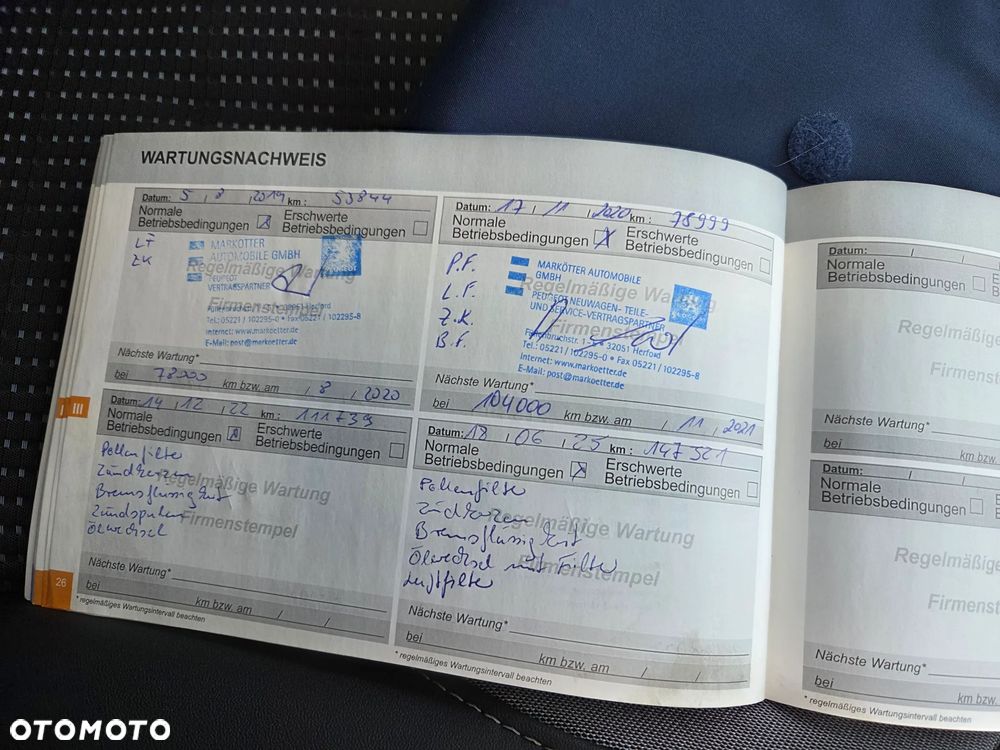 WARTUNGSNACHWEIS
Datum: 5 / 8 / 2019 km : 53844
Normale Betriebsbedingungen ☒ Erschwerte Betriebsbedingungen ☐
LF
ZK
MARKÖTTER
AUTOMOBILE GMBH
PEUGEOT
VERTRAGSPARTNER
Regelmäßige Wartung
Firmenstempel
32051 Herford
Tel.: 05221 / 102295-0 • Fax 05221 / 102295-8
Internet: www.markoetter.de
E-Mail: post@markoetter.de
Nächste Wartung*
bei 78000 km bzw. am / 8 / 2020
Datum: 17 / 11 / 2020 km : 78999
Normale Betriebsbedingungen ☒ Erschwerte Betriebsbedingungen ☐
P.F.
L.F.
Z.K.
B.F.
MARKÖTTER AUTOMOBILE
GMBH
PEUGEOT NEUWAGEN- TEILE-
UND SERVICE-VERTRAGSPARTNER
Regelmäßige Wartung
Firmenstempel
32051 Herford
Tel.: 05221 / 102295-0 • Fax 05221 / 102295-8
Internet: www.markoetter.de
E-Mail: post@markoetter.de
Nächste Wartung*
bei 104000 km bzw. am / 11 / 2021
Datum: 14 / 12 / 22 km : 111739
Normale Betriebsbedingungen ☒ Erschwerte Betriebsbedingungen ☐
Pollenfilter
Zündkerzen
Bremsflüssigkeit
Zündspulen
Ölwechsel
Regelmäßige Wartung
Firmenstempel
Nächste Wartung*
bei km bzw. am / /
Datum: 18 / 06 / 25 km : 147521
Normale Betriebsbedingungen ☒ Erschwerte Betriebsbedingungen ☐
Pollenfilter
Zündkerzen
Bremsflüssigkeit
Ölwechsel mit Filter
Luftfilter
Regelmäßige Wartung
Firmenstempel
Nächste Wartung*
bei km bzw. am / /
III
26
* regelmäßiges Wartungsintervall beachten
* regelmäßiges Wartungsintervall beachten
Datum: / /
Normale Betriebsbedingungen ☐
Regelmäßige
Firmens
Nächste Wartung*
bei km bz
Datum: /
Normale Betriebsbedingungen ☐
Regelmäßige
Firmens
Nächste Wartung*
bei km bzw.
* regelmäßiges Wartungsintervall beachten
OTOMOTO